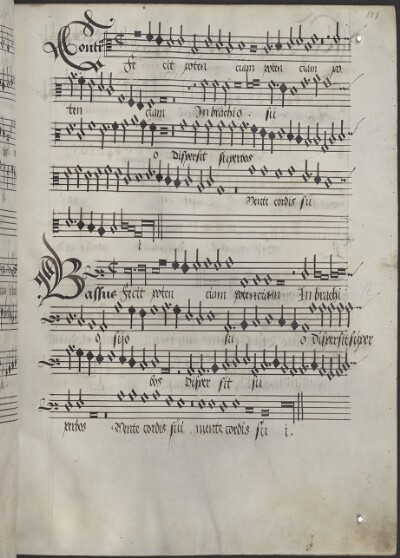 Contr
Fe cit poten ciam poten ciam po
ten ciam In brachio sii
o dispersit superbos
Mente cordis sui
Bassus Fecit poten ciam potenciam In brachi
o suo sii o dispersit super
bos disper sit sii
perbos Mente cordis sui mente cordis su i.